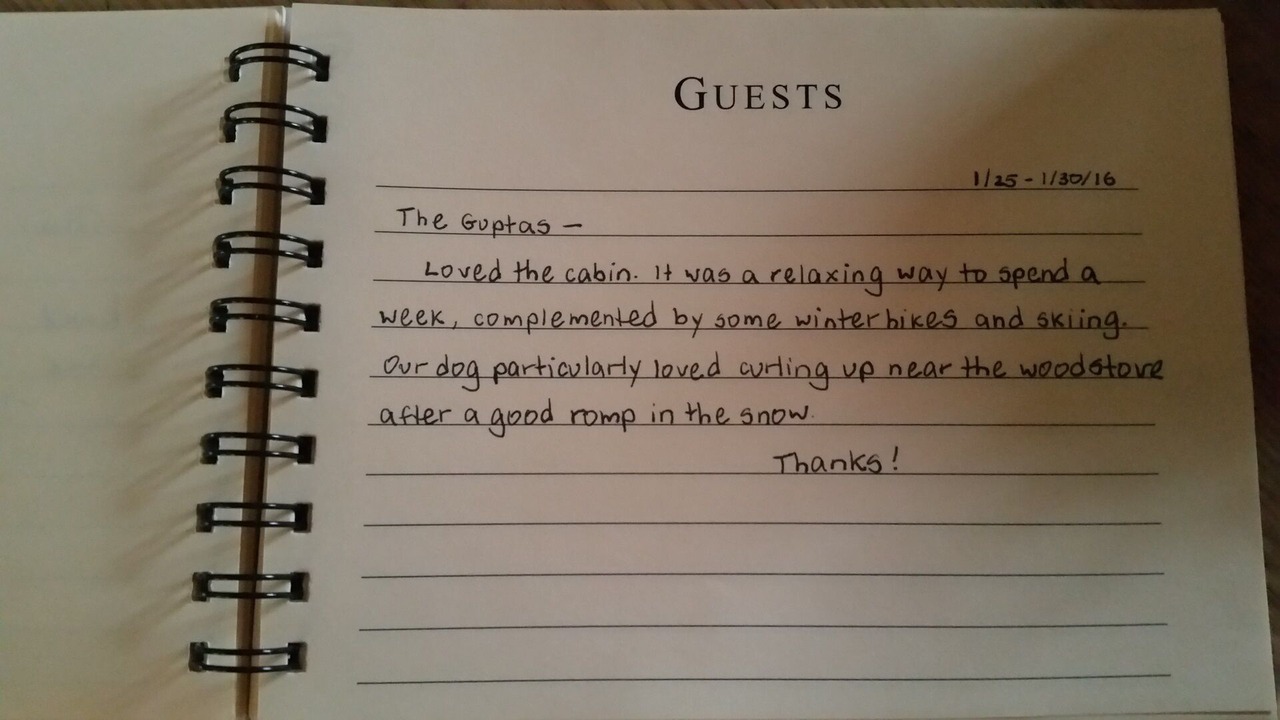 GUESTS
1/25 - 1/30/16
The Guptas —
Loved the cabin. It was a relaxing way to spend a
week, complemented by some winter hikes and skiing.
Our dog particularly loved curling up near the woodstove
after a good romp in the snow.
Thanks!